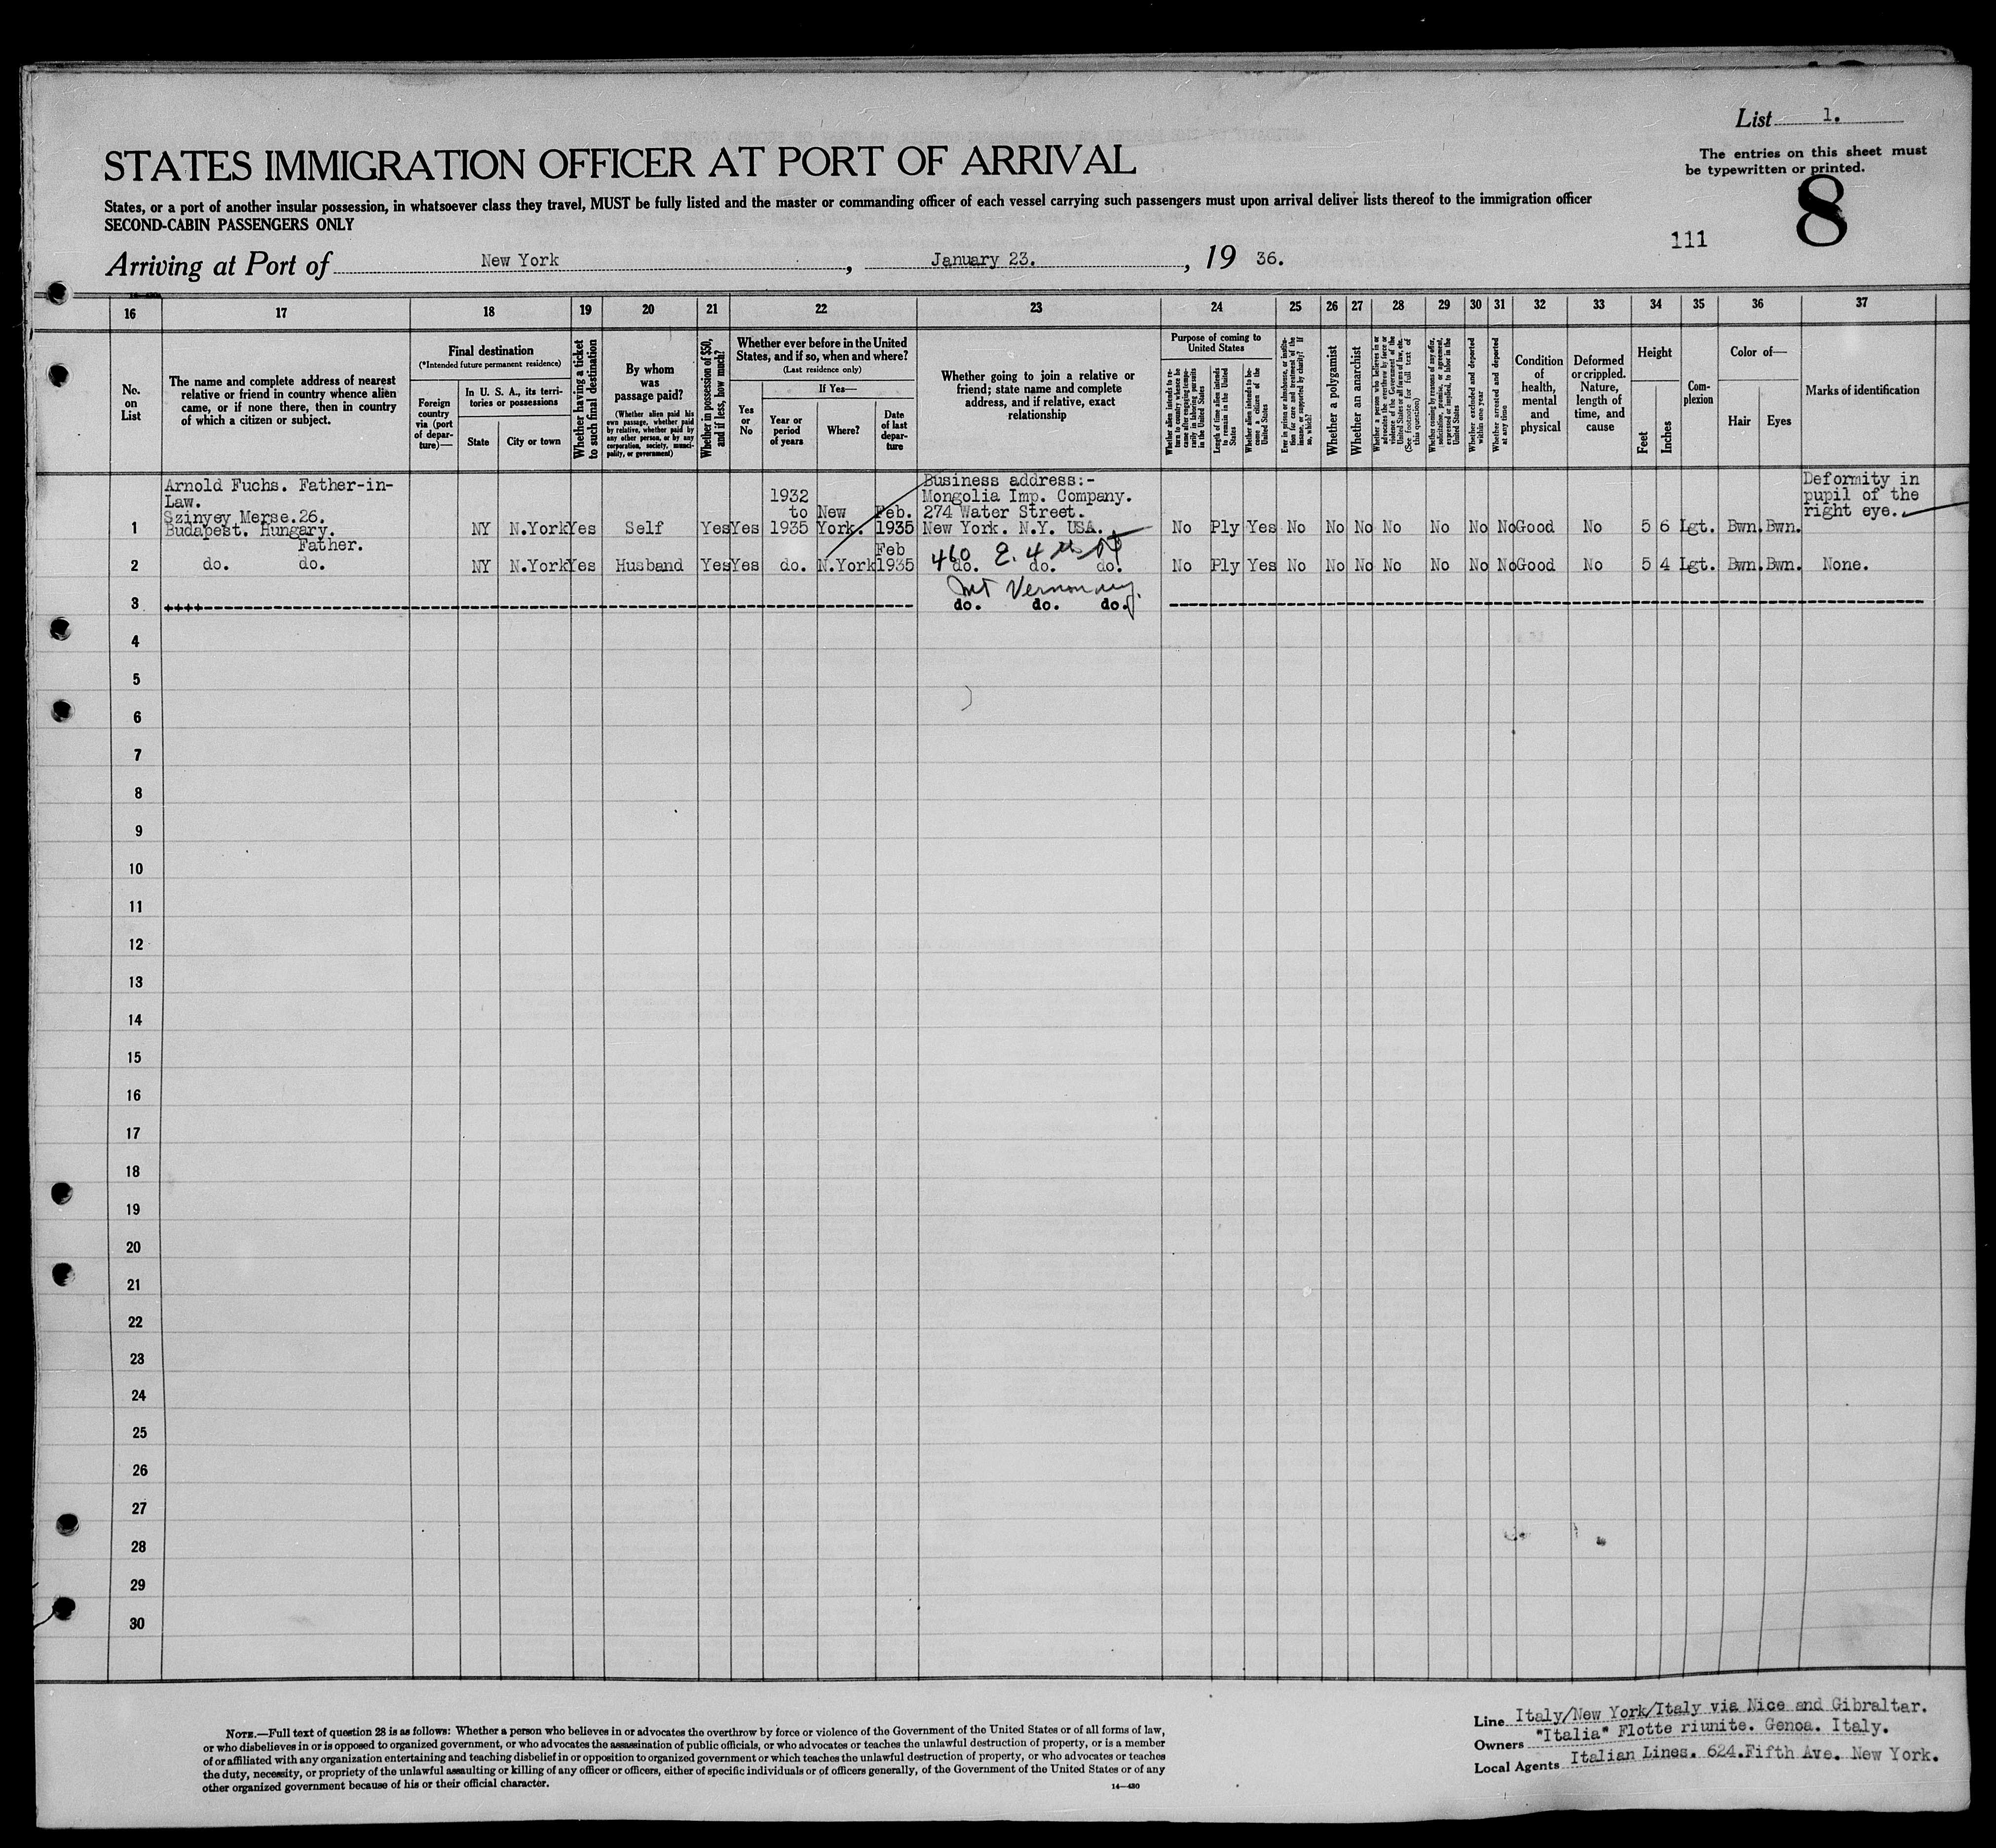 List 1.
The entries on this sheet must
be typewritten or printed.
STATES IMMIGRATION OFFICER AT PORT OF ARRIVAL
8
States, or a port of another insular possession, in whatsoever class they travel, MUST be fully listed and the master or commanding officer of each vessel carrying such passengers must upon arrival deliver lists thereof to the immigration officer
SECOND-CABIN PASSENGERS ONLY
111
Arriving at Port of New York, January 23., 19 36.
16 17 18 19 20 21 22 23 24 25 26 27 28 29 30 31 32 33 34 35 36 37
No. on List
The name and complete address of nearest
relative or friend in country whence alien
came, or if none there, then in country
of which a citizen or subject.
Final destination
(*Intended future permanent residence)
Foreign
country
via (port
of depar-
ture)—
In U. S. A., its terri-
tories or possessions
State
City or town
Whether having a ticket
to such final destination
By whom
was
passage paid?
(Whether alien paid his
own passage, whether paid
by relative, whether paid by
any other person, or by any
corporation, society, munici-
pality, or government)
Whether in possession of $50,
and if less, how much?
Whether ever before in the United
States, and if so, when and where?
(Last residence only)
Yes
or
No
If Yes—
Year or
period
of years
Where?
Date
of last
depar-
ture
Whether going to join a relative or
friend; state name and complete
address, and if relative, exact
relationship
Purpose of coming to
United States
Whether alien intends to re-
turn to country whence he
came after engaging tempo-
rarily in laboring pursuits
in the United States
Length of time alien intends
to remain in the United
States
Whether alien intends to be-
come a citizen of the
United States
Ever in prison or almshouse, or institu-
tion for care and treatment of the
insane, or supported by charity? If
so, which?
Whether a polygamist
Whether an anarchist
Whether a person who believes in or
advocates the overthrow by force or
violence of the Government of the
United States or all forms of law, etc.
(See footnote for full text of
this question)
Whether coming by reason of any offer,
solicitation, promise, or agreement,
expressed or implied, to labor in the
United States
Whether excluded and deported
within one year
Whether arrested and deported
at any time
Condition
of
health,
mental
and
physical
Deformed
or crippled.
Nature,
length of
time, and
cause
Height
Feet
Inches
Com-
plexion
Color of—
Hair
Eyes
Marks of identification
Arnold Fuchs. Father-in-
Law.
Szinyey Merse.26.
1932
to New Feb.
Business address:-
Mongolia Imp. Company.
274 Water Street.
Deformity in
pupil of the
right eye.
1 Budapest. Hungary. NY N.York Yes Self Yes Yes 1935 York. 1935 New York. N.Y. USA. No Ply Yes No No No No No No No Good No 5 6 Lgt. Bwn. Bwn.
Father. Feb
460 E. 4th St
2 do. do. NY N.York Yes Husband Yes Yes do. N.York 1935 do. do. do. No Ply Yes No No No No No No No Good No 5 4 Lgt. Bwn. Bwn. None.
Mt Vernon ny.
3 ++++ do. do. do.
4
5
6
7
8
9
10
11
12
13
14
15
16
17
18
19
20
21
22
23
24
25
26
27
28
29
30
NOTE.—Full text of question 28 is as follows: Whether a person who believes in or advocates the overthrow by force or violence of the Government of the United States or of all forms of law,
or who disbelieves in or is opposed to organized government, or who advocates the assassination of public officials, or who advocates or teaches the unlawful destruction of property, or is a member
of or affiliated with any organization entertaining and teaching disbelief in or opposition to organized government or which teaches the unlawful destruction of property, or who advocates or teaches
the duty, necessity, or propriety of the unlawful assaulting or killing of any officer or officers, either of specific individuals or of officers generally, of the Government of the United States or of any
other organized government because of his or their official character.
14—430
Line Italy/New York/Italy via Nice and Gibraltar.
Owners "Italia" Flotte riunite. Genoa. Italy.
Local Agents Italian Lines. 624.Fifth Ave. New York.